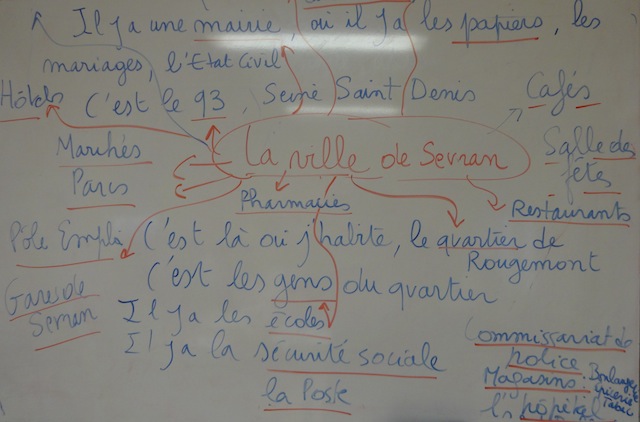 Il y a une mairie, où il y a les papiers, les
mariages, l'Etat Civil
Hôtels
C'est le 93, Seine Saint Denis
Cafés
Marchés
La ville de Sevran
Salle des
fêtes
Parcs
Pharmacies
Restaurants
Pôle Emploi
C'est là où j'habite, le quartier de
Rougemont
C'est les gens du quartier
Gares de
Sevran
Il y a les écoles
Il y a la sécurité sociale
la Poste
Commissariat de
police
Magasins: Boulangerie
épicerie
Tabac
l'hôpital